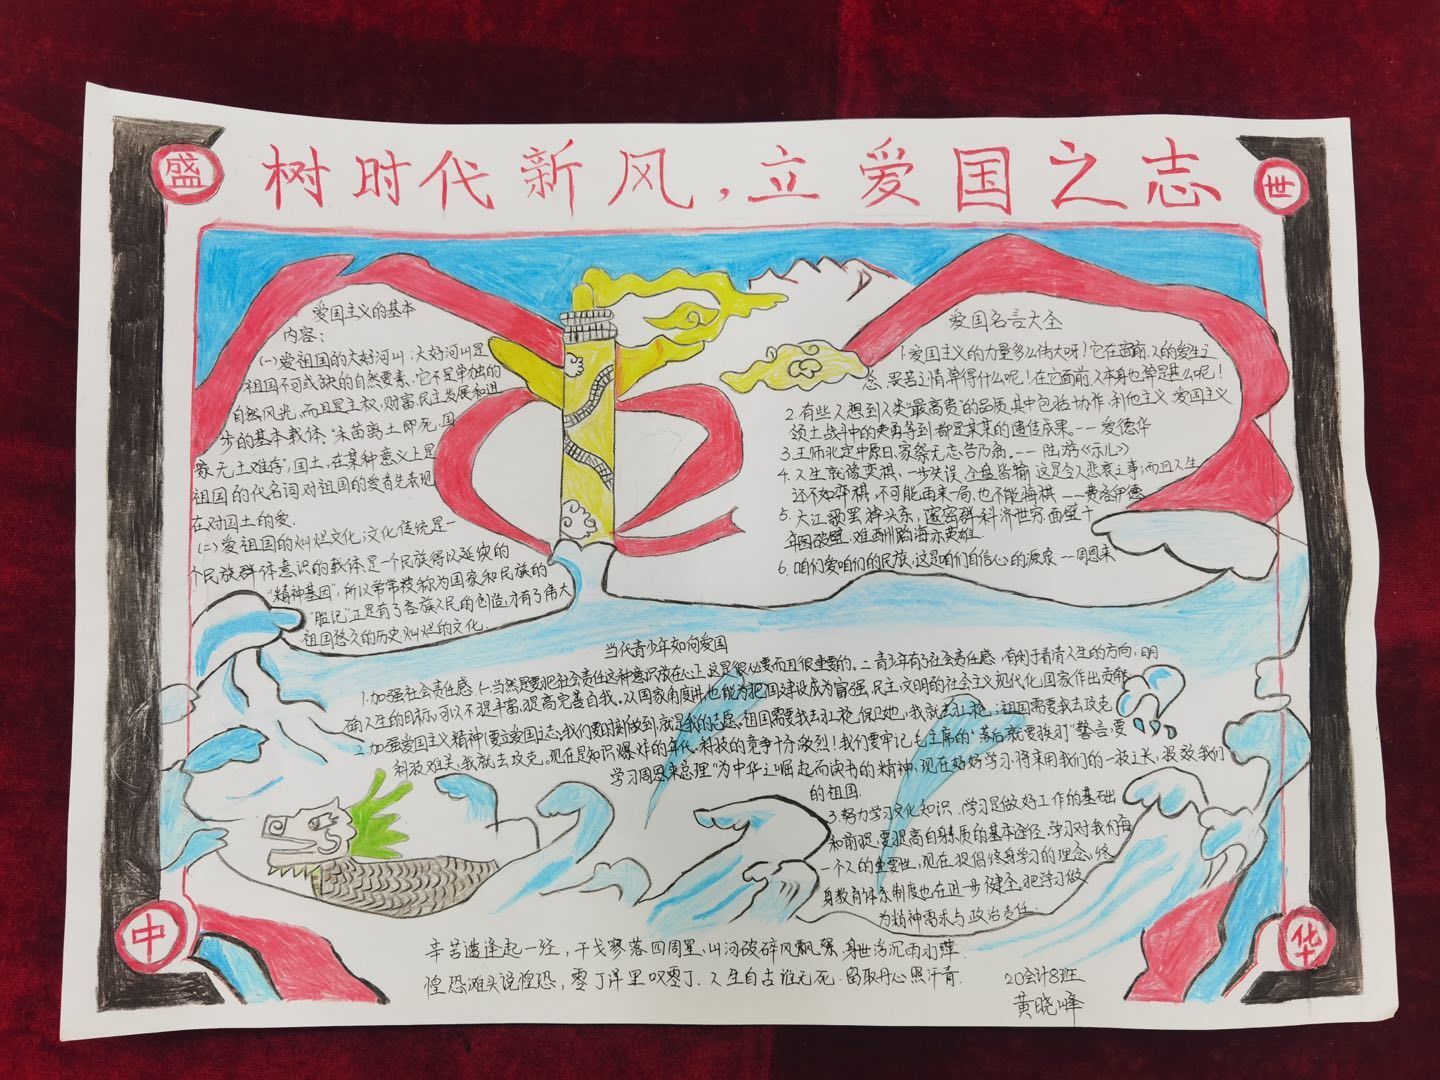 盛
树时代新风，立爱国之志
世
爱国主义的基本
内容：
(一)爱祖国的大好河山：大好河山是
祖国不可或缺的自然要素，它不是单独的
自然风光，而且是主权、财富、民主发展和进
步的基本载体、“禾苗离土即死，国
家无土难存”，国土，在某种意义上是
祖国的代名词.对祖国的爱首先表现
在对国土的爱.
(二)爱祖国的灿烂文化：文化传统是一
个民族群体意识的载体.是一个民族得以延续的
“精神基因”，所以常常被称为国家和民族的
“胎记”正是有了各族人民的创造,才有了伟大
祖国悠久的历史灿烂的文化.
爱国名言大全
1.爱国主义的力量多么伟大呀！它在面前,人的爱生之
念,畏苦之情,算得什么呢！在它面前,人本身也算是甚么呢！
2.有些人想到人类“最高贵”的品质,其中包括协作,利他主义,爱国主义
领土战斗中的英勇等到,都是某某的遗传成果。——爱德华
3.王师北定中原日,家祭无忘告乃翁。——陆游《示儿》
4.人生就像奕棋,一步失误,全盘皆输,这是令人悲哀之事；而且人生
还不如弈棋,不可能再来一局,也不能悔棋 ——弗洛伊德
5.大江歌罢掉头东，邃密群科济世穷.面壁十
年图破壁.难酬蹈海亦英雄.
6.咱们爱咱们的民族,这是咱们自信心的源泉 ——周恩来
当代青少年如何爱国
1.加强社会责任感.(一当然是要把社会责任这种意识放在心上,这是很必要而且很重要的。二.青少年有了社会责任感，有利于看清人生的方向，明
确人生的目标,可以不提丰富,提高完善自我。从国家角度讲,也能为把国建设成为富强,民主,文明的社会主义现代化国家作出贡献
2.加强爱国主义精神(要立爱国之志,我们要时新做到:就是我的志愿.祖国需要我去扛枪,保卫她,我就去扛枪；祖国需要我去攻克
科技难关,我就去攻克。现在是知识爆炸的年代,科技的竞争十分激烈！我们要牢记毛主席的“落后就要挨打”警言,要
学习周恩来总理“为中华之崛起而读书的精神,现在好好学习.将来用我们的一技之长,报效我们
的祖国.
3.努力学习文化知识.学习是做好工作的基础
和前提,要提高自身素质的基本途径.学习对我们每
一个人的重要性.现在提倡终身学习的理念,终
身教育体系制度也在进一步健全.把学习做
为精神需求与政治责任.
辛苦遭逢起一经，干戈寥落四周星.山河破碎风飘絮,身世浮沉雨打萍.
惶恐滩头说惶恐，零丁洋里叹零丁.人生自古谁无死.留取丹心照汗青.
20会计8班
黄晓峰
中
华